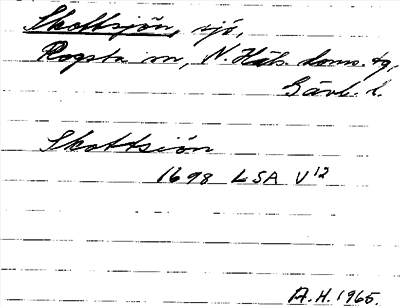 Skottsjön, sjö,
Rogsta sn, N. Häls. doms. tg,
Gävl. l.
Skottsiön
1698 LSA V 12
A.H. 1965.